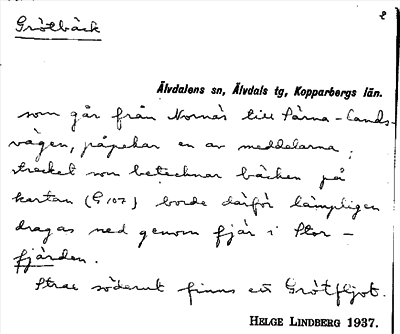 Grötbäck
2
Älvdalens sn, Älvdals tg, Kopparbergs län.
som går från Nornäs till Särna-Lands-
vägen, påpekar en av meddelarna;
strecket som betecknar bäcken på
kartan (G 107) borde därför lämpligen
dragas ned genom fjär i Stor-
fjärden.
Strax söderut finns ett Grötfljot.
HELGE LINDBERG 1937.